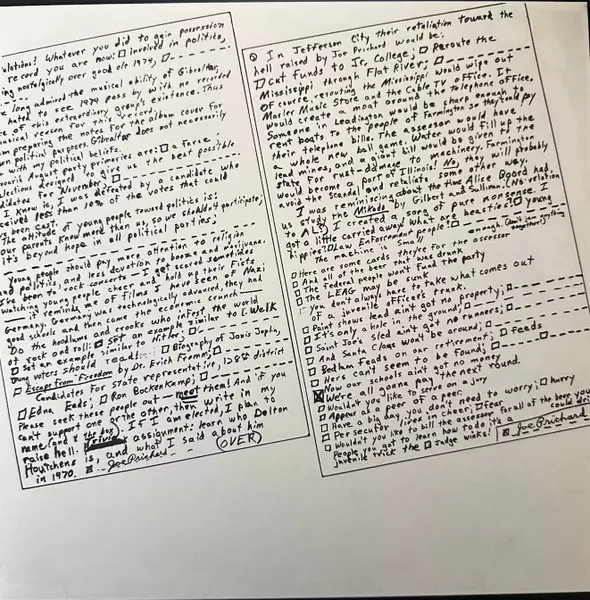 violations! Whatever you did to gain possession
record you are now: □ involved in politics,
ing nostalgically over good o/r 1974, □
long admired the musical ability of Gibraltar,
hated to see 1979 pass by with no recorded
of this extraordinary group's existence. Thus
musical preparing the notes for the album cover for
own political purposes. Gibraltar does not necessarily
with my political beliefs.
August party primaries are: □ a farce;
elections designed to give us the best possible
candidates for November; □
I know is, I was defeated by a candidate who
received less than 10% of the votes that could
've been cast.
The attitude of young people toward politics is:
its parents know more than us, so we shouldn't participate;
it's beyond hope in all political parties;
Young people should pay more attention to religion
and politics, and less devotion to booze and marijuana.
I've been to rock concerts — I get scared sometimes
watching young people cheer and hold up their fists
— it reminds me of films I have seen of Nazi
Germany. Germany was technologically advanced, they had
good schools and then came the economic crunch —
Do the hoodlums and crooks who infest the world
of rock and roll: □ set an example similar to L. Welk
□ set an example similar to Hitler; □
Young voters should read: □ Biography of Janis Joplin,
□ Escape from Freedom by Dr. Erich Fromm; □
Candidates for State representative, 128th district
□ Edna Eads; □ Ron Bockenkamp; □
Please seek these people out — meet them! And if you
can't support one or the other, then write in my
name (in the day). If I am elected, I plan to
raise hell. assignment: learn who Delton
Houtchens is, and what I said about him
in 1970. ☒ Joe Prichard (OVER)
In Jefferson City their retaliation toward the
hell raised by Joe Prichard would be:
□ Cut funds to Jr. College; □ Reroute the
Mississippi through Flat River; □
Of course, rerouting the Mississippi would wipe out
Mosler Music Store and the Cable TV office. It
would create a moat around the telephone office.
Someone in Leadington would be sharp enough to
rent boats to the people of Farmington so they could pay
their telephone bills. The assessor would have
a whole new ball game. Water would fill up the
lead mines, and a giant bill would be given to the
state for rust-damage to machinery. Farmington
would become a part of Illinois! No, they will probably
avoid the scandal and retaliate some other way.
I was reminiscing about the time Alice Doord had
us study the Mikado by Gilbert and Sullivan. (No relation
to AL S) I created a song of pure nonsense. I
got a little carried away! what are beasties? □ young
hippies? □ Law Enforcement people? □
□ The machine is small enough. (Ain't it anything altogether?)
□ Here are some cards they're for the assessor
□ And all of the beer that was drunk
□ The Federal people won't fund the party
□ The LEAG may be sunk.
□ You don't always have to take what comes out
of a juvenile officer's trunk.
□ Paint shows lead ain't got no property; □
□ It's only a hole in the ground; □
□ Saint Joe's sled ain't got no runners; □
□ And Santa Claus won't be around; □
□ Bedham Feeds on our retirement; □ feeds
□ Here can't seem to be found; □
□ Now our schools ain't got no money
☒ We're all gonna pay next round.
□ Would you like to serve on a jury
□ Appear as a peer of a peer.
□ Have a big day, you don't need to worry; □ hurry
□ Persecutor lives in cheer; □ fear.
□ Wouldn't you like to bill the assessor for all of the beer you could drink
People, you got to learn how to do it's a
juvenile trick the □ Judge winks! ☒ Joe Prichard